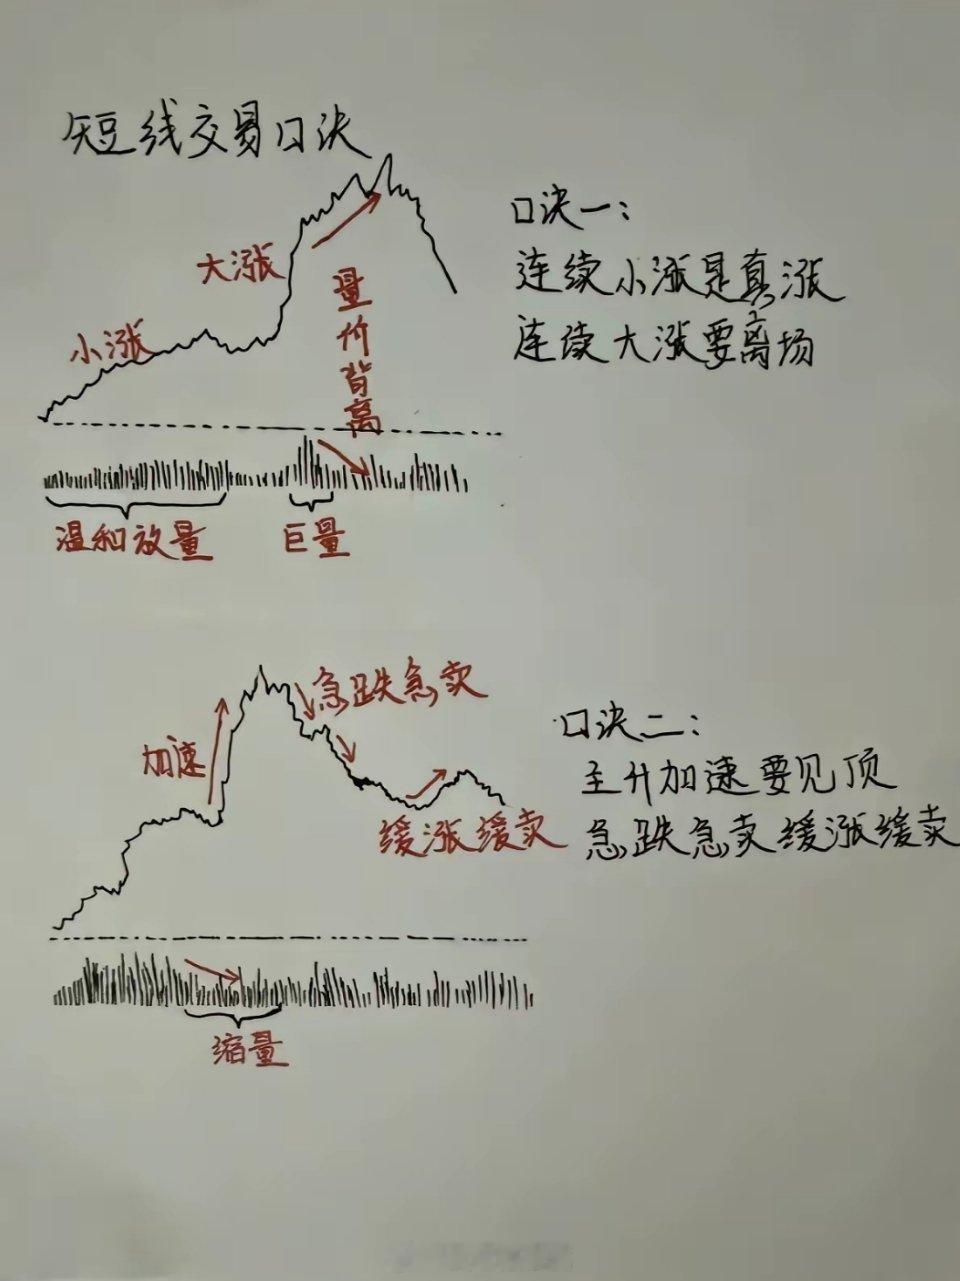 短线交易口决
口决一:
连续小涨是真涨
连续大涨要离场
大涨
小涨
量价背离
温和放量
巨量
口决二:
主升加速要见顶
急跌急卖缓涨缓卖
加速
急跌急卖
缓涨缓卖
缩量